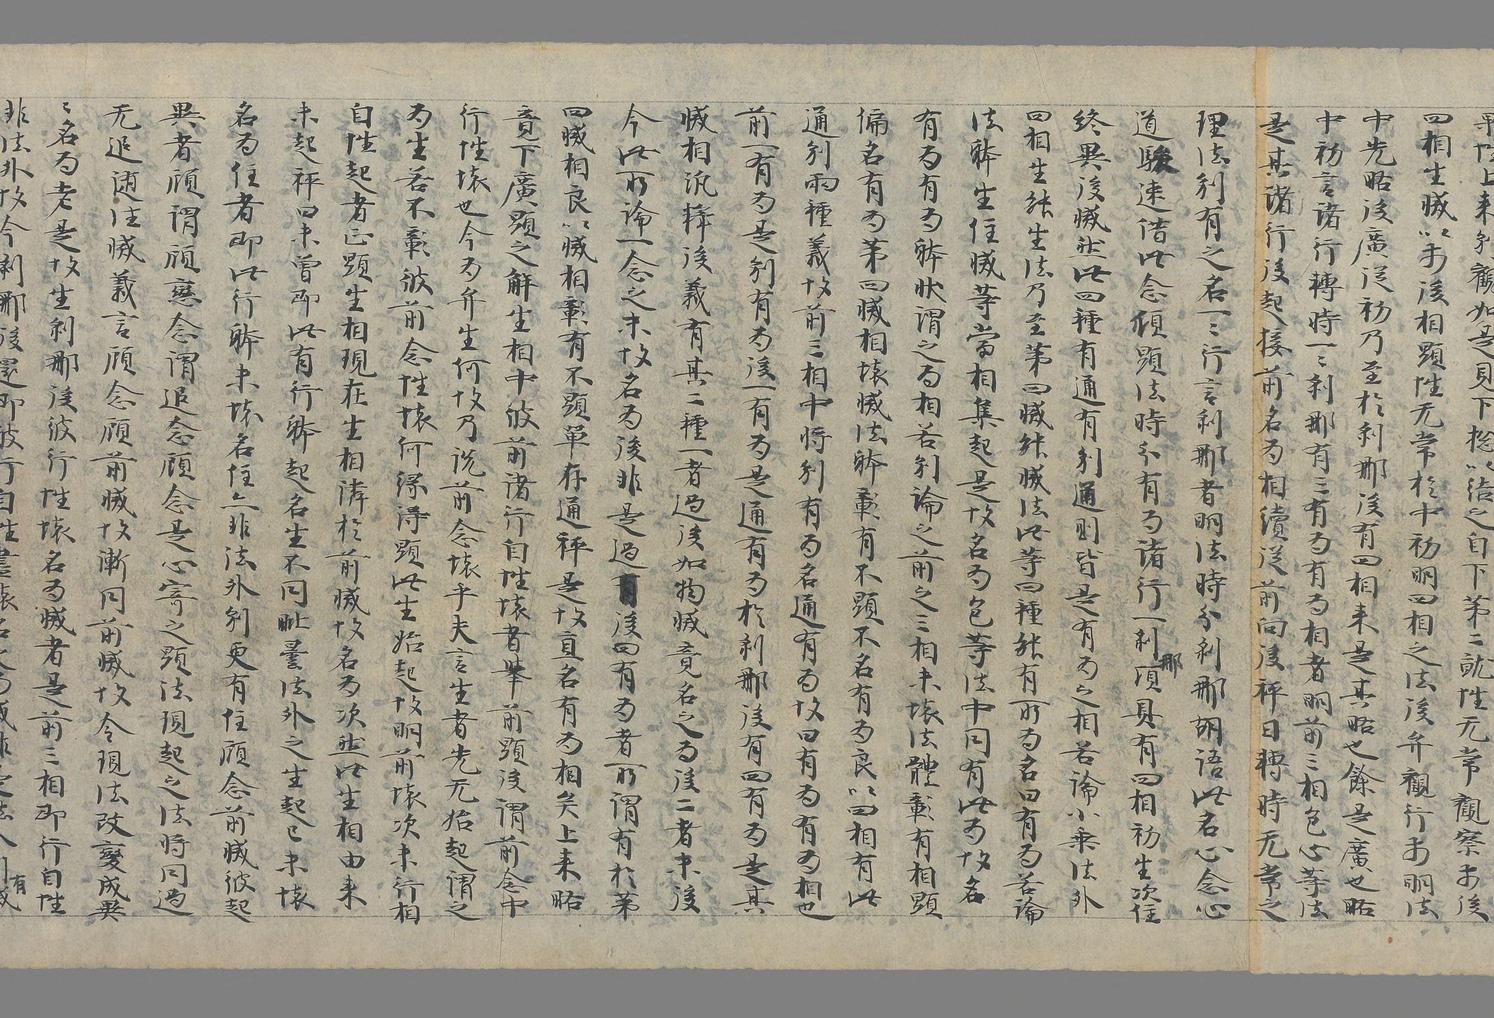 四相生滅以方後相顕性无常於中初明四相之法後弁觀行方明法
中先略後廣從初乃至於刹那後有四相来是其略也餘是廣也略
中初言諸行轉時一〻刹那有三有为有为相者明前三相色心等法
是其諸行後起接前名为相續從前向後秤曰轉時无常之
理法别有之名一〻行言刹那者明法時分刹那胡語此名心念心
道駿速借此念傾顕法時分有为諸行一刹那項具有四相初生次住
終異後滅然此四種有通有别通則皆是有为之相若論小乗法外
四相生能生法乃至第四滅能滅法此等四種能有所为名曰有为若論
法躰生住滅等當相集起是故名为色等法中同有此为故名
有为有为躰状謂之为相若别論之前之三相未壊法體彰有相顕
偏名有为第四滅相壊滅法躰彰有不顕不名有为良以四相有此
通别兩種義故前三相中将别有为名通有为故曰有为有为相也
前一有为是别有为後一有为是通有为於刹那後有四有为是其
滅相汎釋後義有其二種一者過後如物滅竟名之为後二者未後
今此所論一念之未故名为後非是過後四有为者所謂有於第
四滅相良以滅相彰有不顕單存通秤是故直名有为相矣上来略
竟下廣顕之解生相中彼前諸行自性壊者舉前顕後謂前念中
行性壊也今为弁生何故乃説前念壊乎夫言生者先无始起謂之
为生若不彰彼前念性壊何縁得顕此生始起故明前壊次未行相
自性起者正顕生相現在生相隣於前滅故名为次然此生相由来
未起秤曰未曽即此有行躰起名生不同毗曇法外之生起已未壊
名为住者即此行躰未壊名住亠非法外别更有住顧念前滅彼起
異者顧謂顧戀念謂追念顧念是心寄之顕法現起之法時同過
无追逋往滅義言顧念顧前滅故漸同前滅故令現法改變成異
〻名为老是故生刹那後彼行性壊名为滅者是前三相即行自性